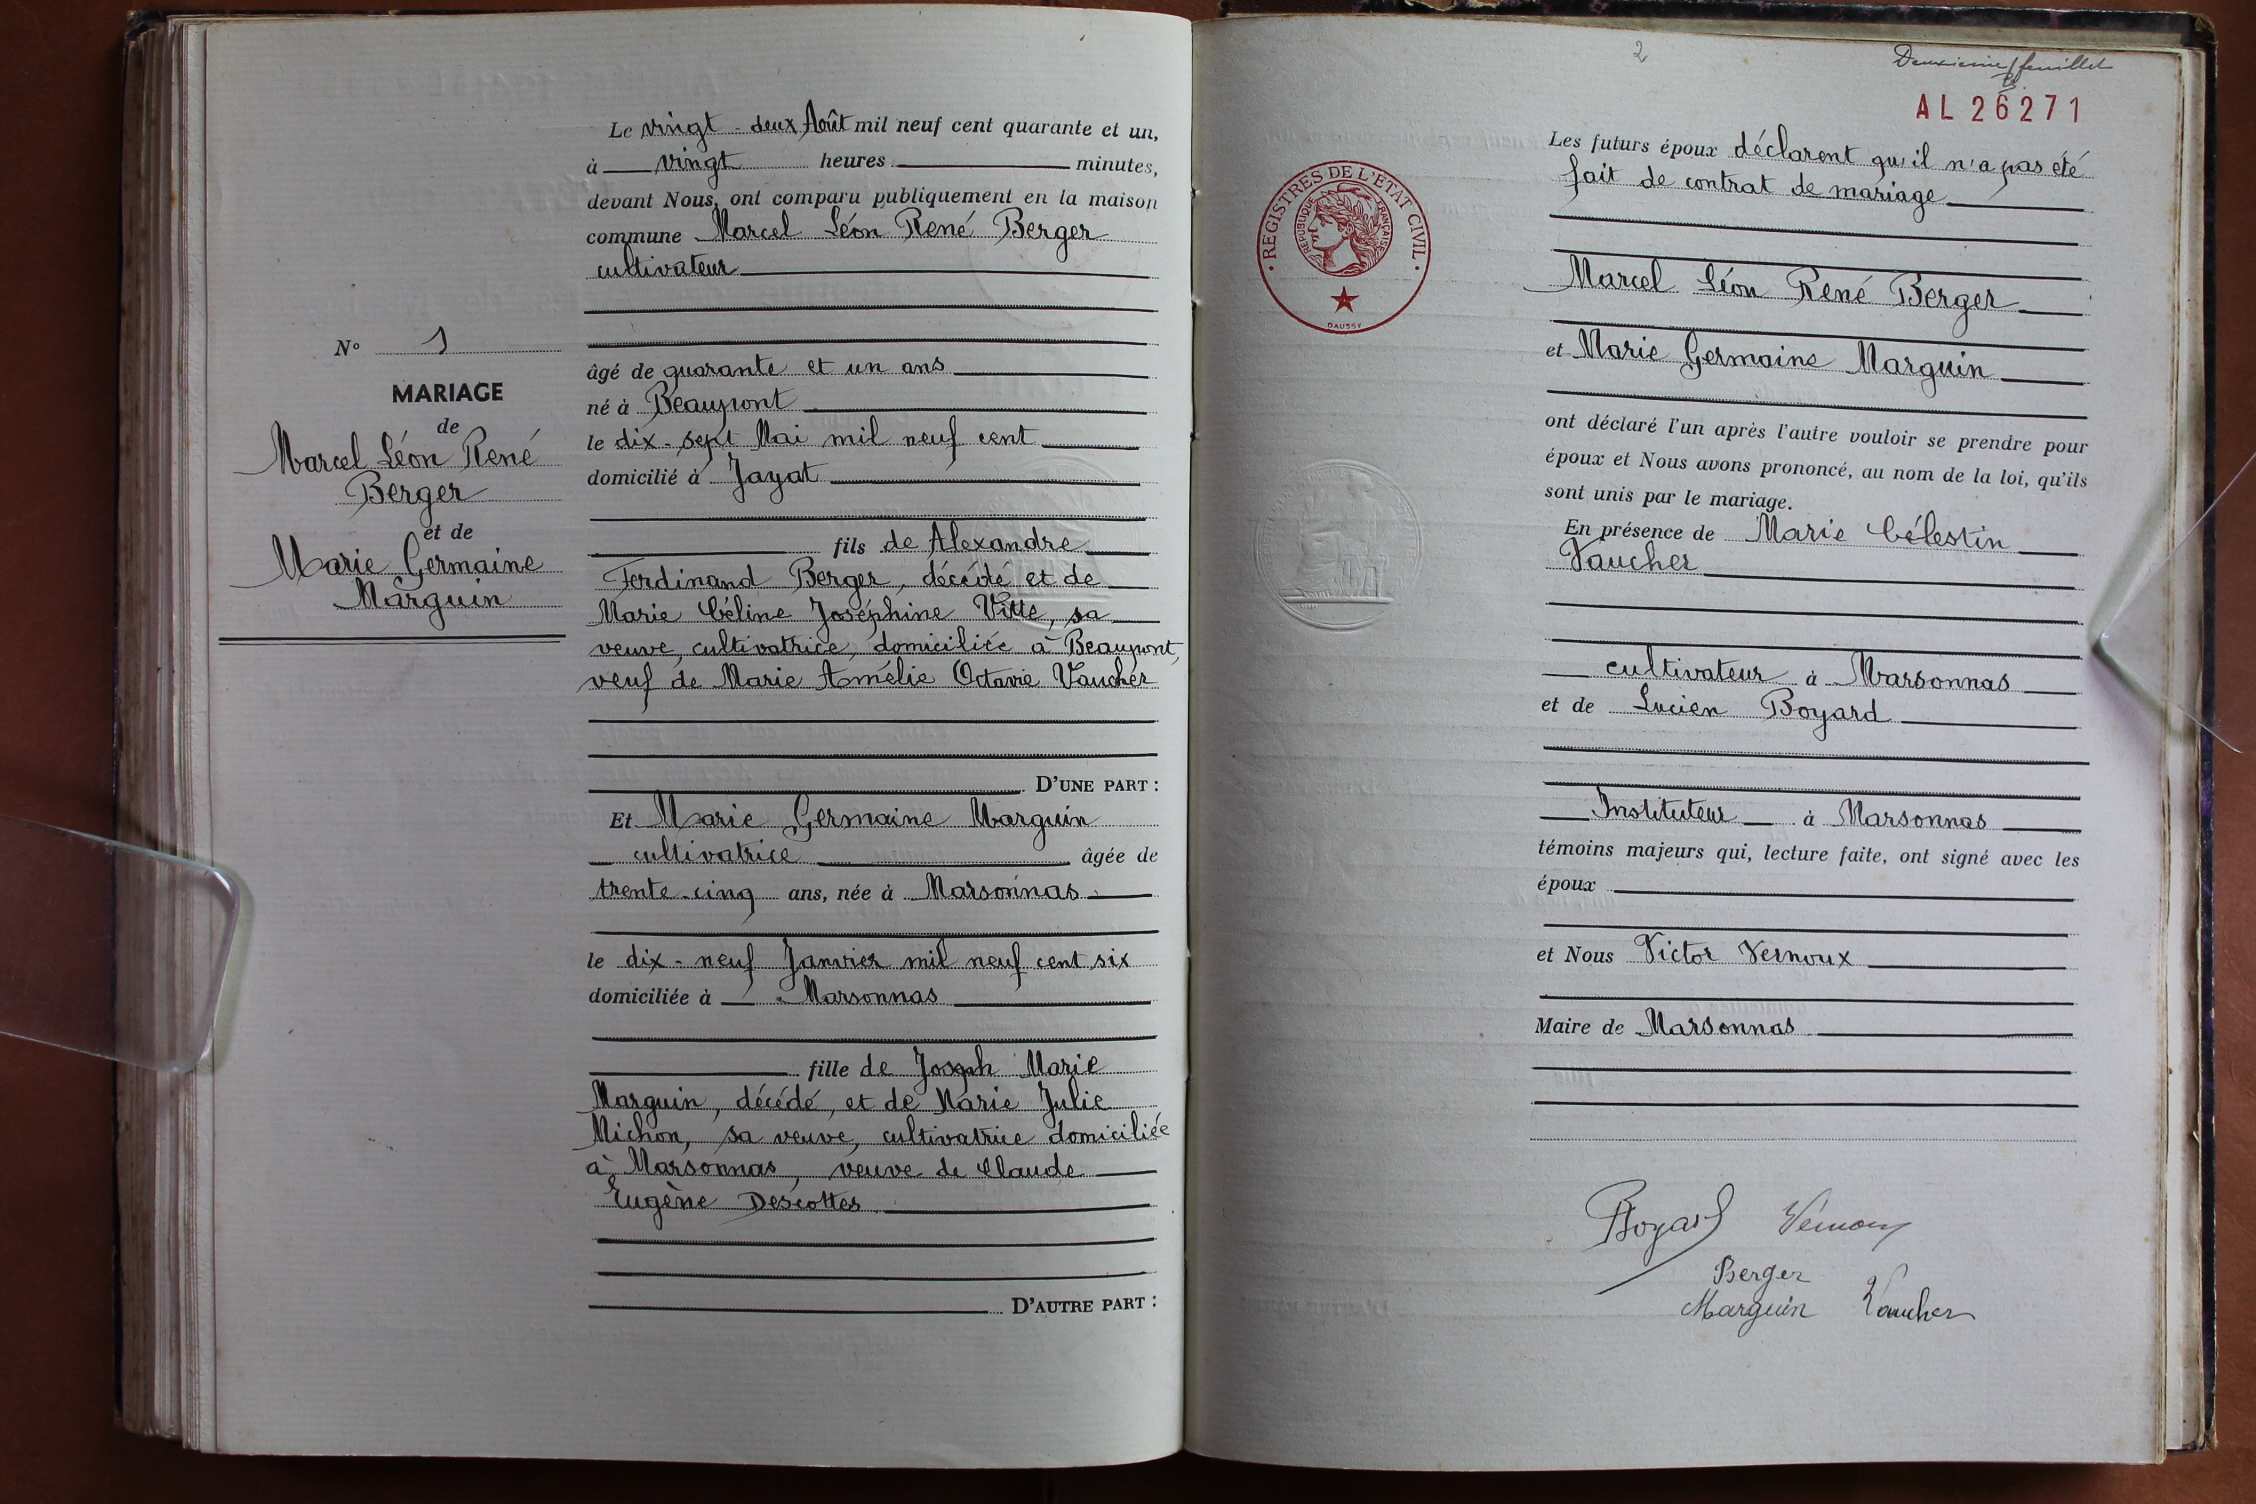 Le vingt-deux Août mil neuf cent quarante et un,
à vingt heures minutes,
devant Nous, ont comparu publiquement en la maison
commune Marcel Léon René Berger
cultivateur
N° 1
MARIAGE
de
Marcel Léon René
Berger
et de
Marie Germaine
Marguin
âgé de quarante et un ans
né à Beaupont
le dix-sept Mai mil neuf cent
domicilié à Jayat
fils de Alexandre
Ferdinand Berger, décédé et de
Marie Céline Joséphine Vitte, sa
veuve, cultivatrice, domiciliée à Beaupont,
veuf de Marie Amélie Octavie Vaucher
D'UNE PART :
Et Marie Germaine Marguin
cultivatrice âgée de
trente-cinq ans, née à Marsonnas
le dix-neuf Janvier mil neuf cent six
domiciliée à Marsonnas
fille de Joseph Marie
Marguin, décédé, et de Marie Julie
Michon, sa veuve, cultivatrice domiciliée
à Marsonnas, veuve de Claude
Eugène Descottes
D'AUTRE PART :
2
Deuxième feuillet
AL 26271
REGISTRES DE L'ETAT CIVIL
REPUBLIQUE FRANÇAISE
DAUSSY
Les futurs époux déclarent qu'il n'a pas été
fait de contrat de mariage
Marcel Léon René Berger
et Marie Germaine Marguin
ont déclaré l'un après l'autre vouloir se prendre pour
époux et Nous avons prononcé, au nom de la loi, qu'ils
sont unis par le mariage.
En présence de Marie Célestin
Vaucher
cultivateur à Marsonnas
et de Lucien Boyard
Instituteur à Marsonnas
témoins majeurs qui, lecture faite, ont signé avec les
époux
et Nous Victor Vernoux
Maire de Marsonnas
Boyard Vernoux
Berger
Marguin Vaucher